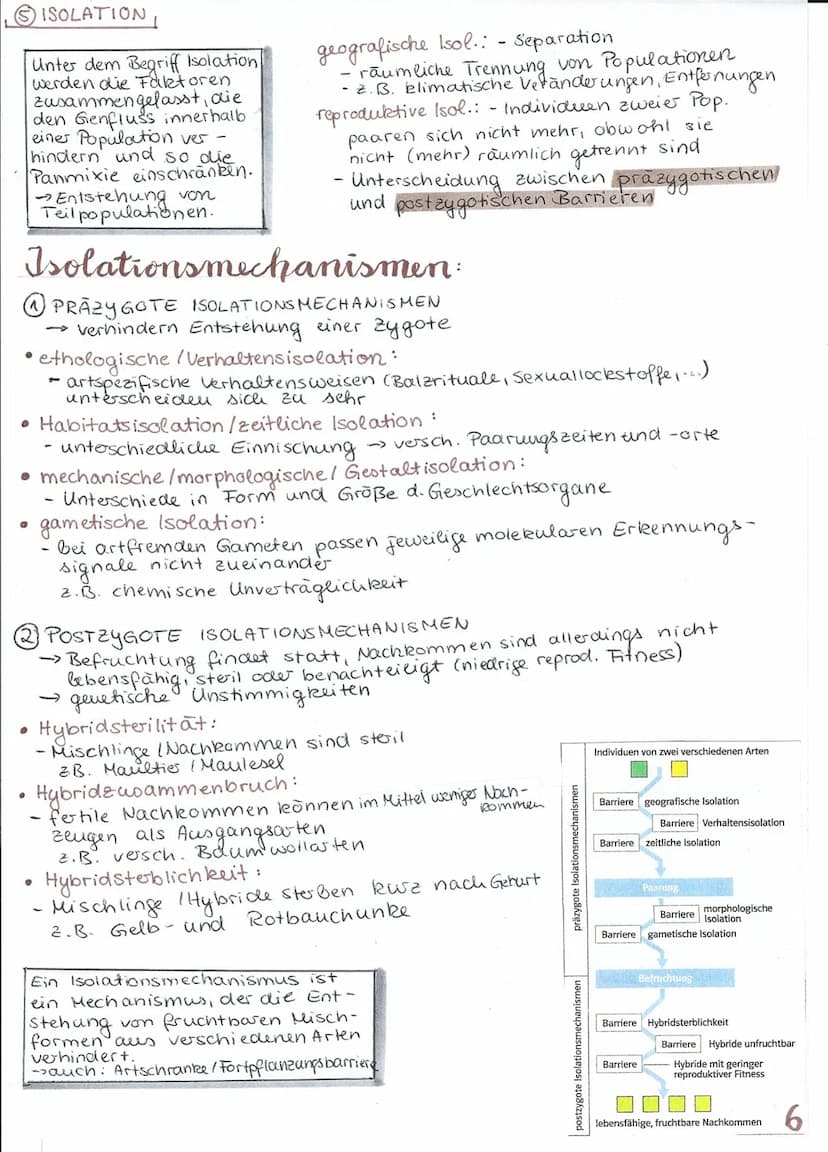 ⑤ ISOLATION
Unter dem Begriff Isolation
werden die Faktoren
zusammengefasst, die
den Genfluss innerhalb
einer Population ver-
hindern und so die
Panmixie einschränken.
→ Entstehung von
Teilpopulationen.
geografische Isol.: - Separation
- räumliche Trennung von Populationen
- z.B. klimatische Veränderungen, Entfernungen
reproduktive Isol.: - Individuen zweier Pop.
paaren sich nicht mehr, obwohl sie
nicht (mehr) räumlich getrennt sind
- Unterscheidung zwischen präzygotischen
und postzygotischen Barrieren
Isolationsmechanismen:
① PRÄZYGOTE ISOLATIONSMECHANISMEN
→ verhindern Entstehung einer Zygote
• ethologische/Verhaltensisolation:
- artspezifische Verhaltensweisen (Balzrituale, Sexuallockstoffe,...)
unterscheiden sich zu sehr
• Habitatsisolation/zeitliche Isolation:
- unterschiedliche Einnischung → versch. Paarungszeiten und -orte
• mechanische/morphologische/Gestaltisolation:
- Unterschiede in Form und Größe d. Geschlechtsorgane
• gametische Isolation:
- bei artfremden Gameten passen jeweilige molekularen Erkennungs-
signale nicht zueinander
z.B. chemische Unverträglichkeit
② POSTZYGOTE ISOLATIONSMECHANISMEN
→ Befruchtung findet statt, Nachkommen sind allerdings nicht
lebensfähig, steril oder benachteiligt (niedrige reprod. Fitness)
→ genetische Unstimmigkeiten
• Hybridsterilität:
- Mischlinge/Nachkommen sind steril
z.B. Maultier/Maulesel
• Hybridzusammenbruch:
- fertile Nachkommen können im Mittel weniger Nach-
kommen
zeugen als Ausgangsarten
z.B. versch. Baumwollarten
• Hybridsterblichkeit:
- Mischlinge/Hybride sterben kurz nach Geburt
z.B. Gelb- und Rotbauchunke
Ein Isolationsmechanismus ist
ein Mechanismus, der die Ent-
stehung von fruchtbaren Misch-
formen aus verschiedenen Arten
verhindert.
→ auch: Artschranke/Fortpflanzungsbarriere
präzygote Isolationsmechanismen
Individuen von zwei verschiedenen Arten
Barriere geografische Isolation
Barriere Verhaltensisolation
Barriere zeitliche Isolation
Paarung
Barriere morphologische
Isolation
Barriere gametische Isolation
Befruchtung
postzygote Isolationsmechanismen
Barriere Hybridsterblichkeit
Barriere Hybride unfruchtbar
Barriere Hybride mit geringer
reproduktiver Fitness
lebensfähige, fruchtbare Nachkommen
6